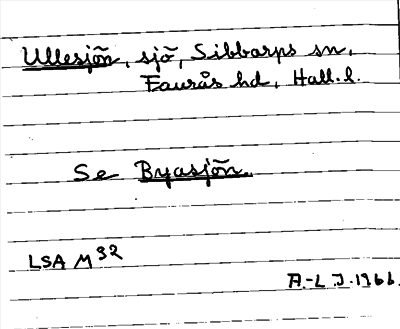 Ullesjön, sjö, Sibbarps sn.
Faurås hd, Hall. l.
Se Byasjön.
LSA M92
A.-L J. 1966.